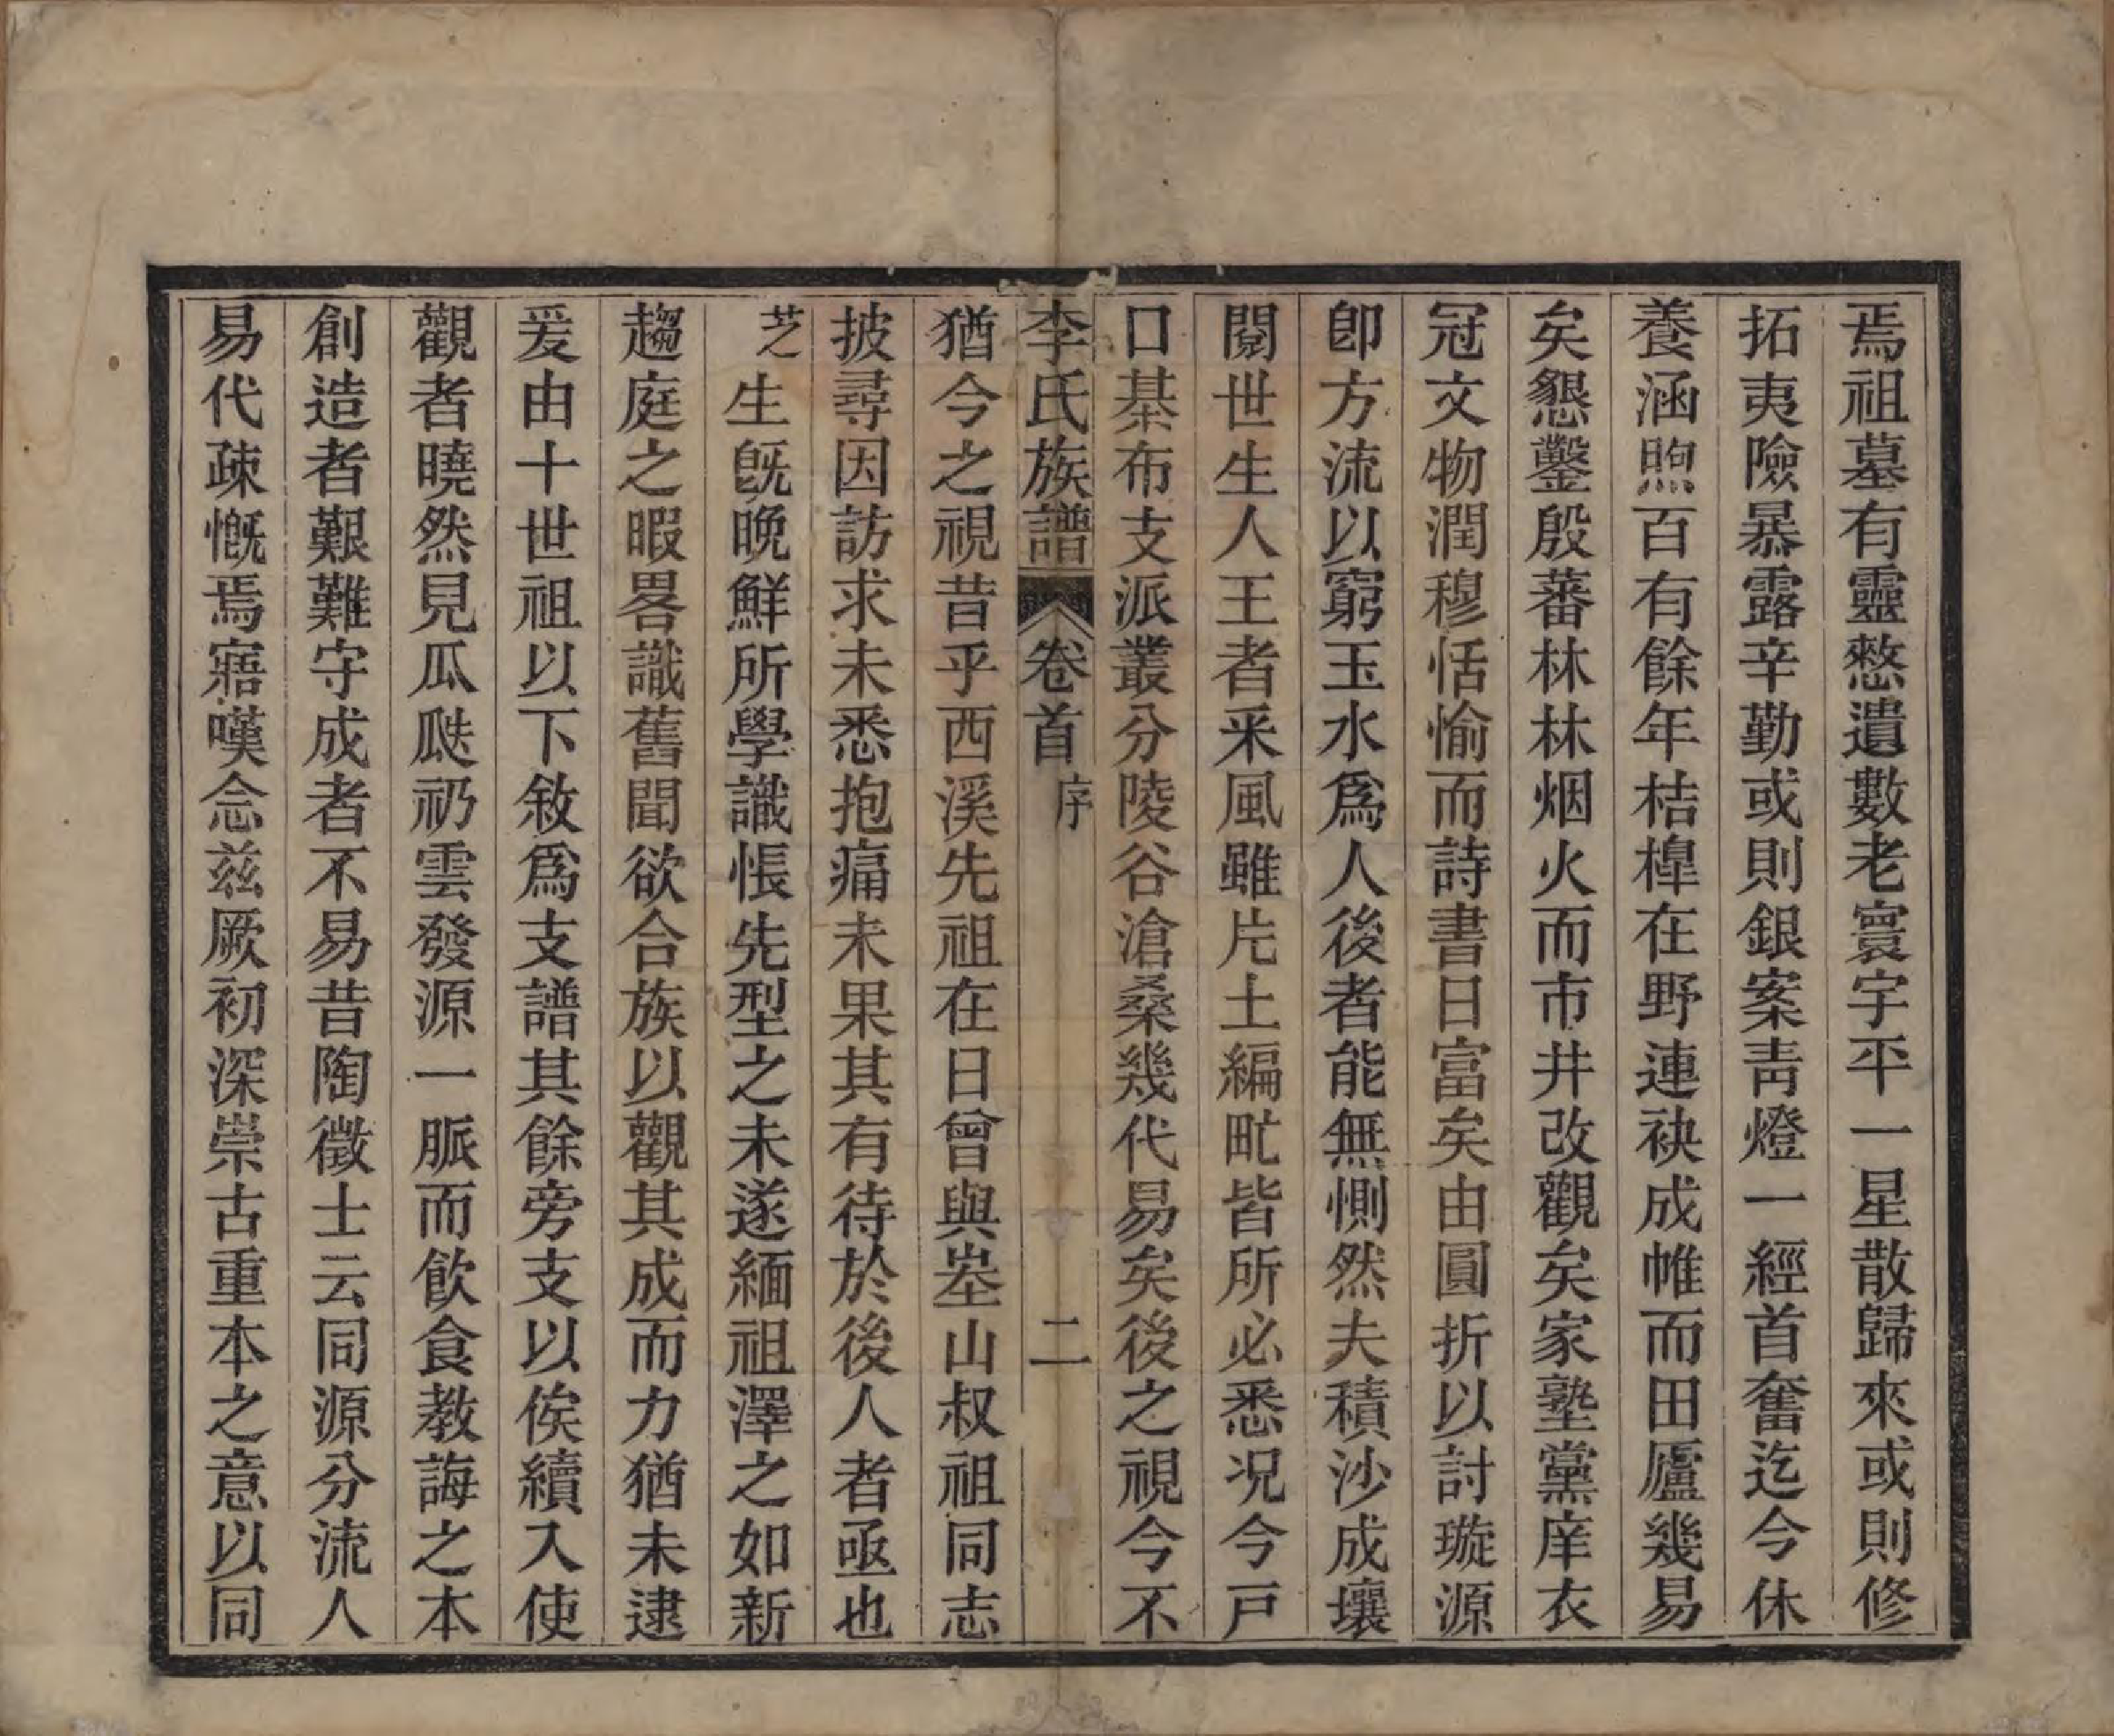 焉祖墓有靈憖遺數老寰宇平一星散歸來或則修
拓夷險暴露辛勤或則銀案靑燈一經首奮迄今休
養涵煦百有餘年桔槹在野連袂成帷而田廬幾易
矣懇鑿殷蕃林林烟火而市井改觀矣家塾黨庠衣
冠文物潤穆恬愉而詩書日富矣由圓折以討璇源
卽方流以窮玉水爲人後者能無惻然夫積沙成壤
閱世生人王者釆風雖片土編甿皆所必悉况今戸
口棊布支派叢分陵谷滄桑幾代易矣後之視今不
李氏族譜 卷首 序 二
猶今之視昔乎西溪先祖在日曾與峚山叔祖同志
披尋因訪求未悉抱痛未果其有待於後人者亟也
芝生旣晩鮮所學識悵先型之未遂緬祖澤之如新
趨庭之暇畧識舊聞欲合族以觀其成而力猶未逮
爰由十世祖以下敘爲支譜其餘旁支以俟續入使
觀者曉然見瓜瓞礽雲發源一脈而飮食教誨之本
創造者艱難守成者不易昔陶徵士云同源分流人
易代疎慨焉寤嘆念兹厥初深崇古重本之意以同